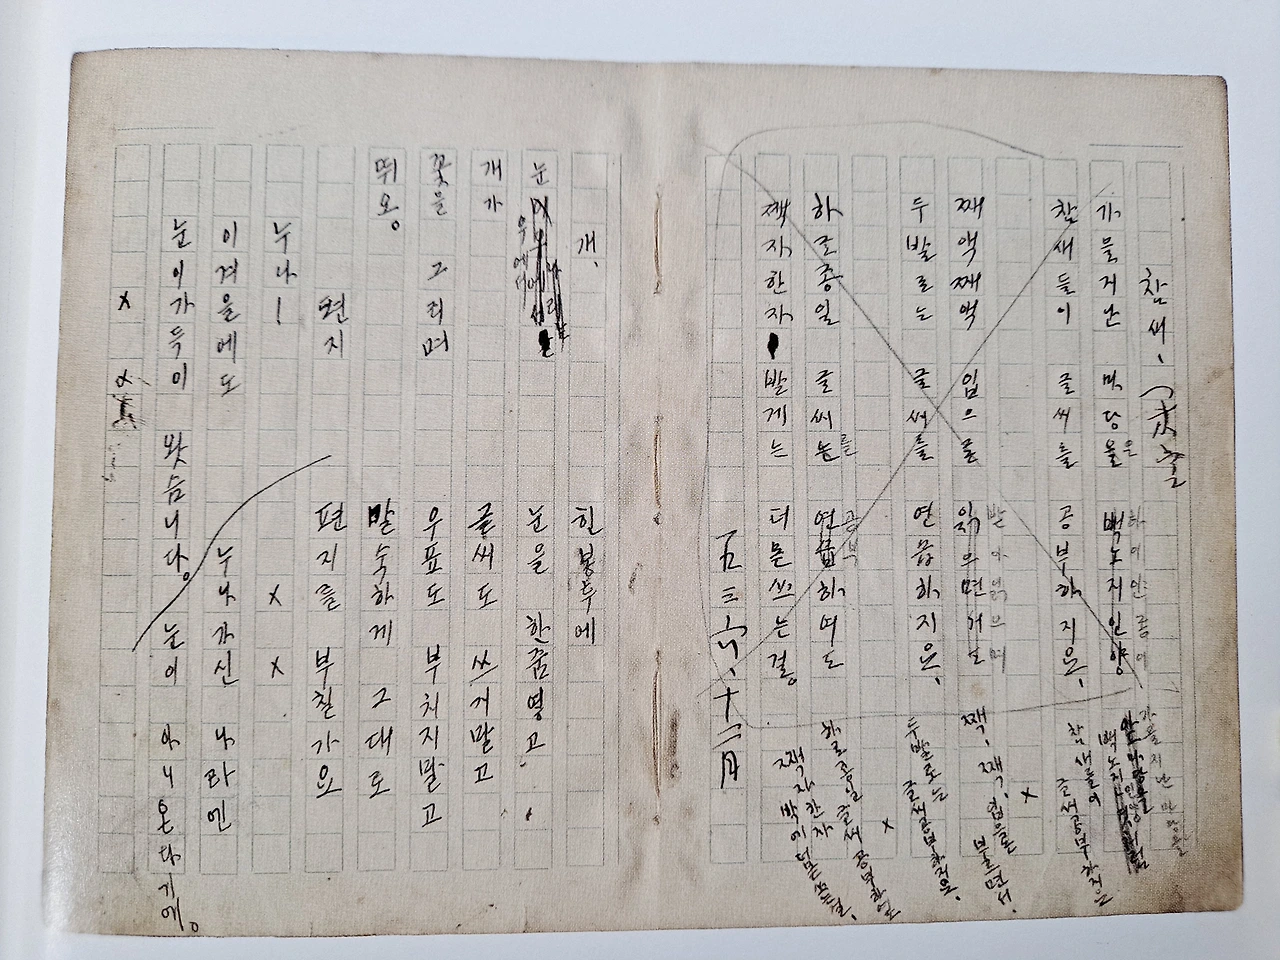 참새、
가을지난 마당을 백노지인양
은
하이얀종이
참새들이 글씨를 공부하지요、
째액째액 입으로
받아읽으며
두발로는 글씨를 연습하지요、
하로종일 글씨를 연습하여도
공부
짹자한자 발게는 더몯쓰는걸。
三六、十二月
가을지난 마당을
참새들이 글씨공부하지요
×
짹、짹、입으론 부르면서、
두발로는 글씨공부하지요、
×
하로종일 글씨공부하여도
짹자한자밖에더몯쓰는걸、
개、
눈
우에서
개가
꽃을 그리며
뛰오。
편지
누나!
이겨을에도
눈이가득이 왓슴니다。
× ×
힌봉투에
눈을 한줌옇고
글씨도 쓰지말고
우표도 부치지말고
말숙하게 그대로
편지를 부칠가요
× ×
누나가신 나라엔
눈이 아니온다기에。